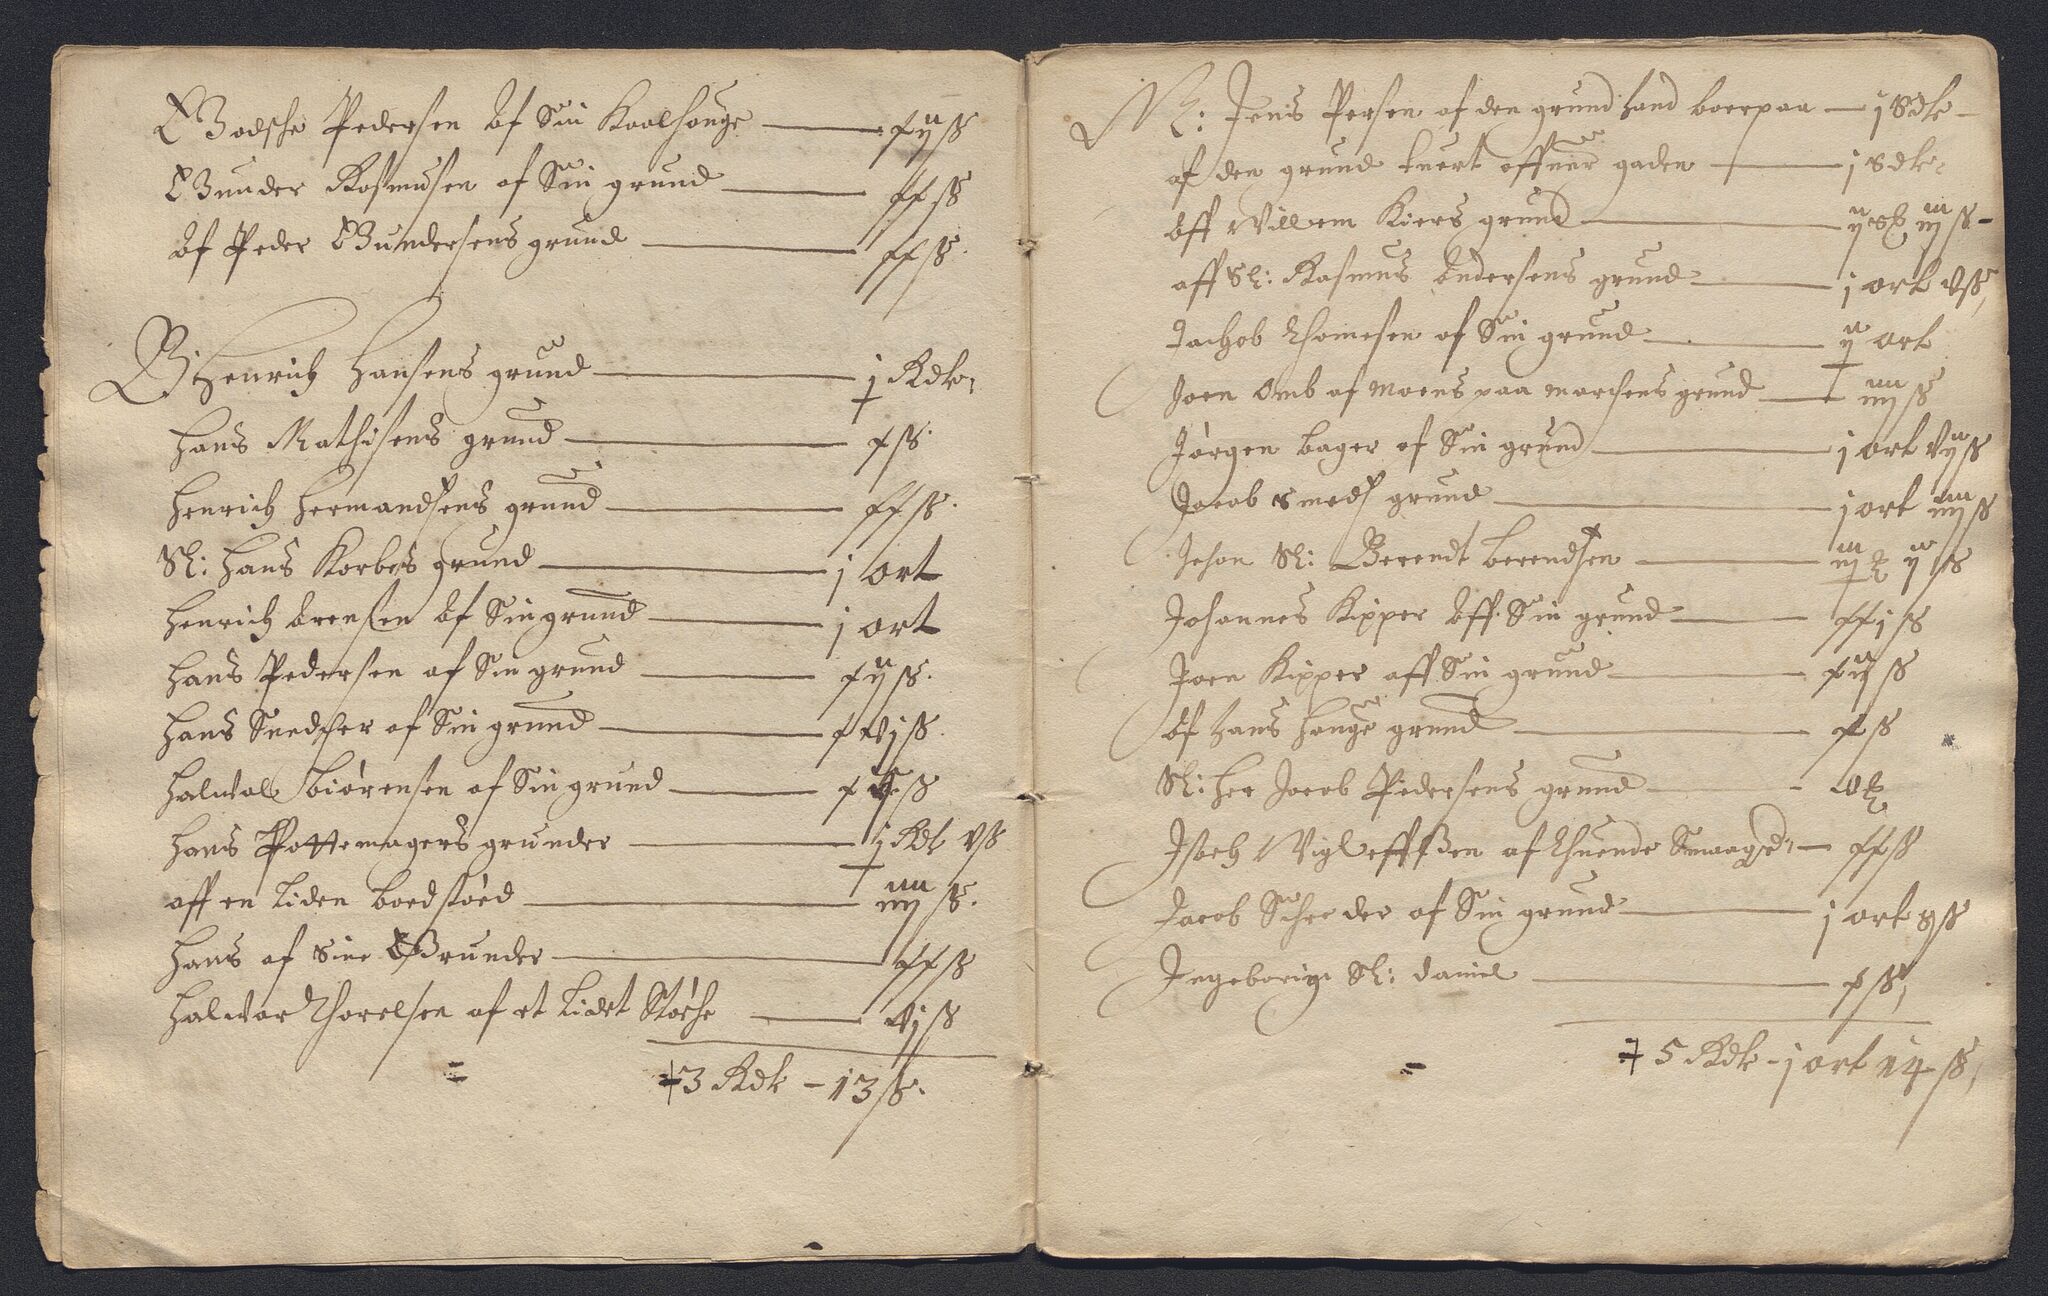 Godsche Pedersen Af Sin Kaalhauge — xij ß
Gunder Rasmusen af Sin grund — xx ß
Af Peder Gundersens grund — xx ß
Henrich Hansens grund — j Rdlr
Hans Mathisens grund — x ß
Henrich Hermandsens grund — xx ß
Sl: Hans Korbes grund — j ort
Henrich Arensen Af Sin grund — j ort
Hans Pedersen af Sin grund — xij ß
Hans Snedcher af Sin grund — xvj ß
Halword Biørensen af Sin grund — ß
Hans Pottemagers grunder — j Rdlr v ß
aff en Liden boedstæd — iiij ß
Hans af Sine Grunder — xx ß
Halwor Thorelsen af et Lidet Støche — vj ß
3 Rdlr – 13 ß
Jens Persen af den grund hand boer paa — j Rdlr
af den grund tuert offuer gaden — j Rdlr
Aff Willem Kiers grund — ij iij ß
aff Sl: Rasmus Andersens grund — j ort v ß
Jachob Thomesen af Sin grund — ij ort
Joen Omb af Moens paa marchens grund — iiij ß
Jørgen bager af Sin grund — j ort vij ß
Jacob Smeds grund — j ort iiij ß
Johan Sl: Berendt berendsen — iij ij ß
Johannes Kipper Aff Sin grund — xxj ß
Joen Kipper aff Sin grund — xij ß
Af Hans Hauge grund — x ß
Sl: Her Jacob Pedersens grund —
Isach Wigleffßen af Thuende — xx ß
Jacob Schreder af Sin grund — j ort 8 ß
Ingeborig Sl: Daniel — x ß
5 Rdlr – j ort 14 ß